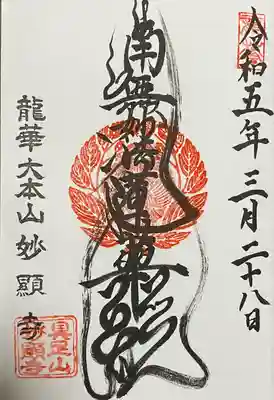 令和五年三月二十八日
南無妙法蓮華経
龍華大本山妙顯寺
具足山
妙顕寺